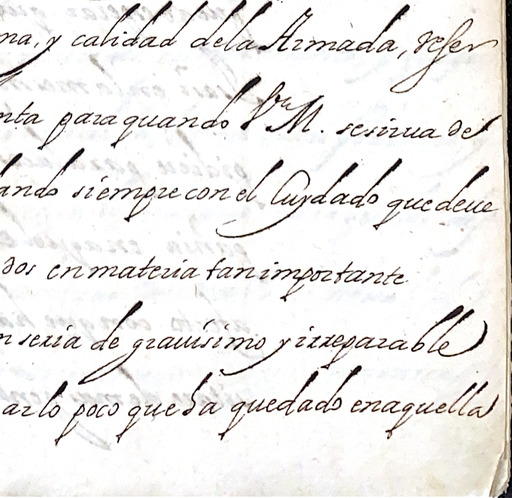 na, y calidad dela Armada, reser
nta para quando V. M. sesirua del
ando siempre con el Cuydado que deue
dos en materia tan importante
n seria de grauisimo y irreparable
ar lo poco que ha quedado en aquella